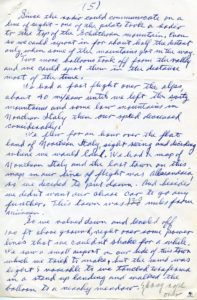 (5)
Since the radio could communicate on a
line of sight - one of the pilots took a radio
to the top of the Schilthorn mountain, then
so we could report in for about half the distance
only when some of the mountains got in the way.
Two more balloons took off from the valley
and we could spot them in the distance
most of the time.
We had a fast flight over the alps
about 40 mph or until we left the
mountains and saw low mountains in
Northern Italy then our speed decreased
considerably.
We flew for an hour over the flat
land of Northern Italy, sight seeing and deciding
where we would land. We had a map of
Northern Italy and the last town on this
map in our line of flight was Alessandria
so we decided to put down. And besides
we didn't want our chase car to go any
further. This town was miles from
Mürren.
So we valved down and leveled off
100 ft above ground, right over some power
lines that we couldn't shake for a while.
We saw a small airport on our side of this town
which we tried to make but the wind was
light &
in a stand up landing and walked the
balloon to a nearby meadow.